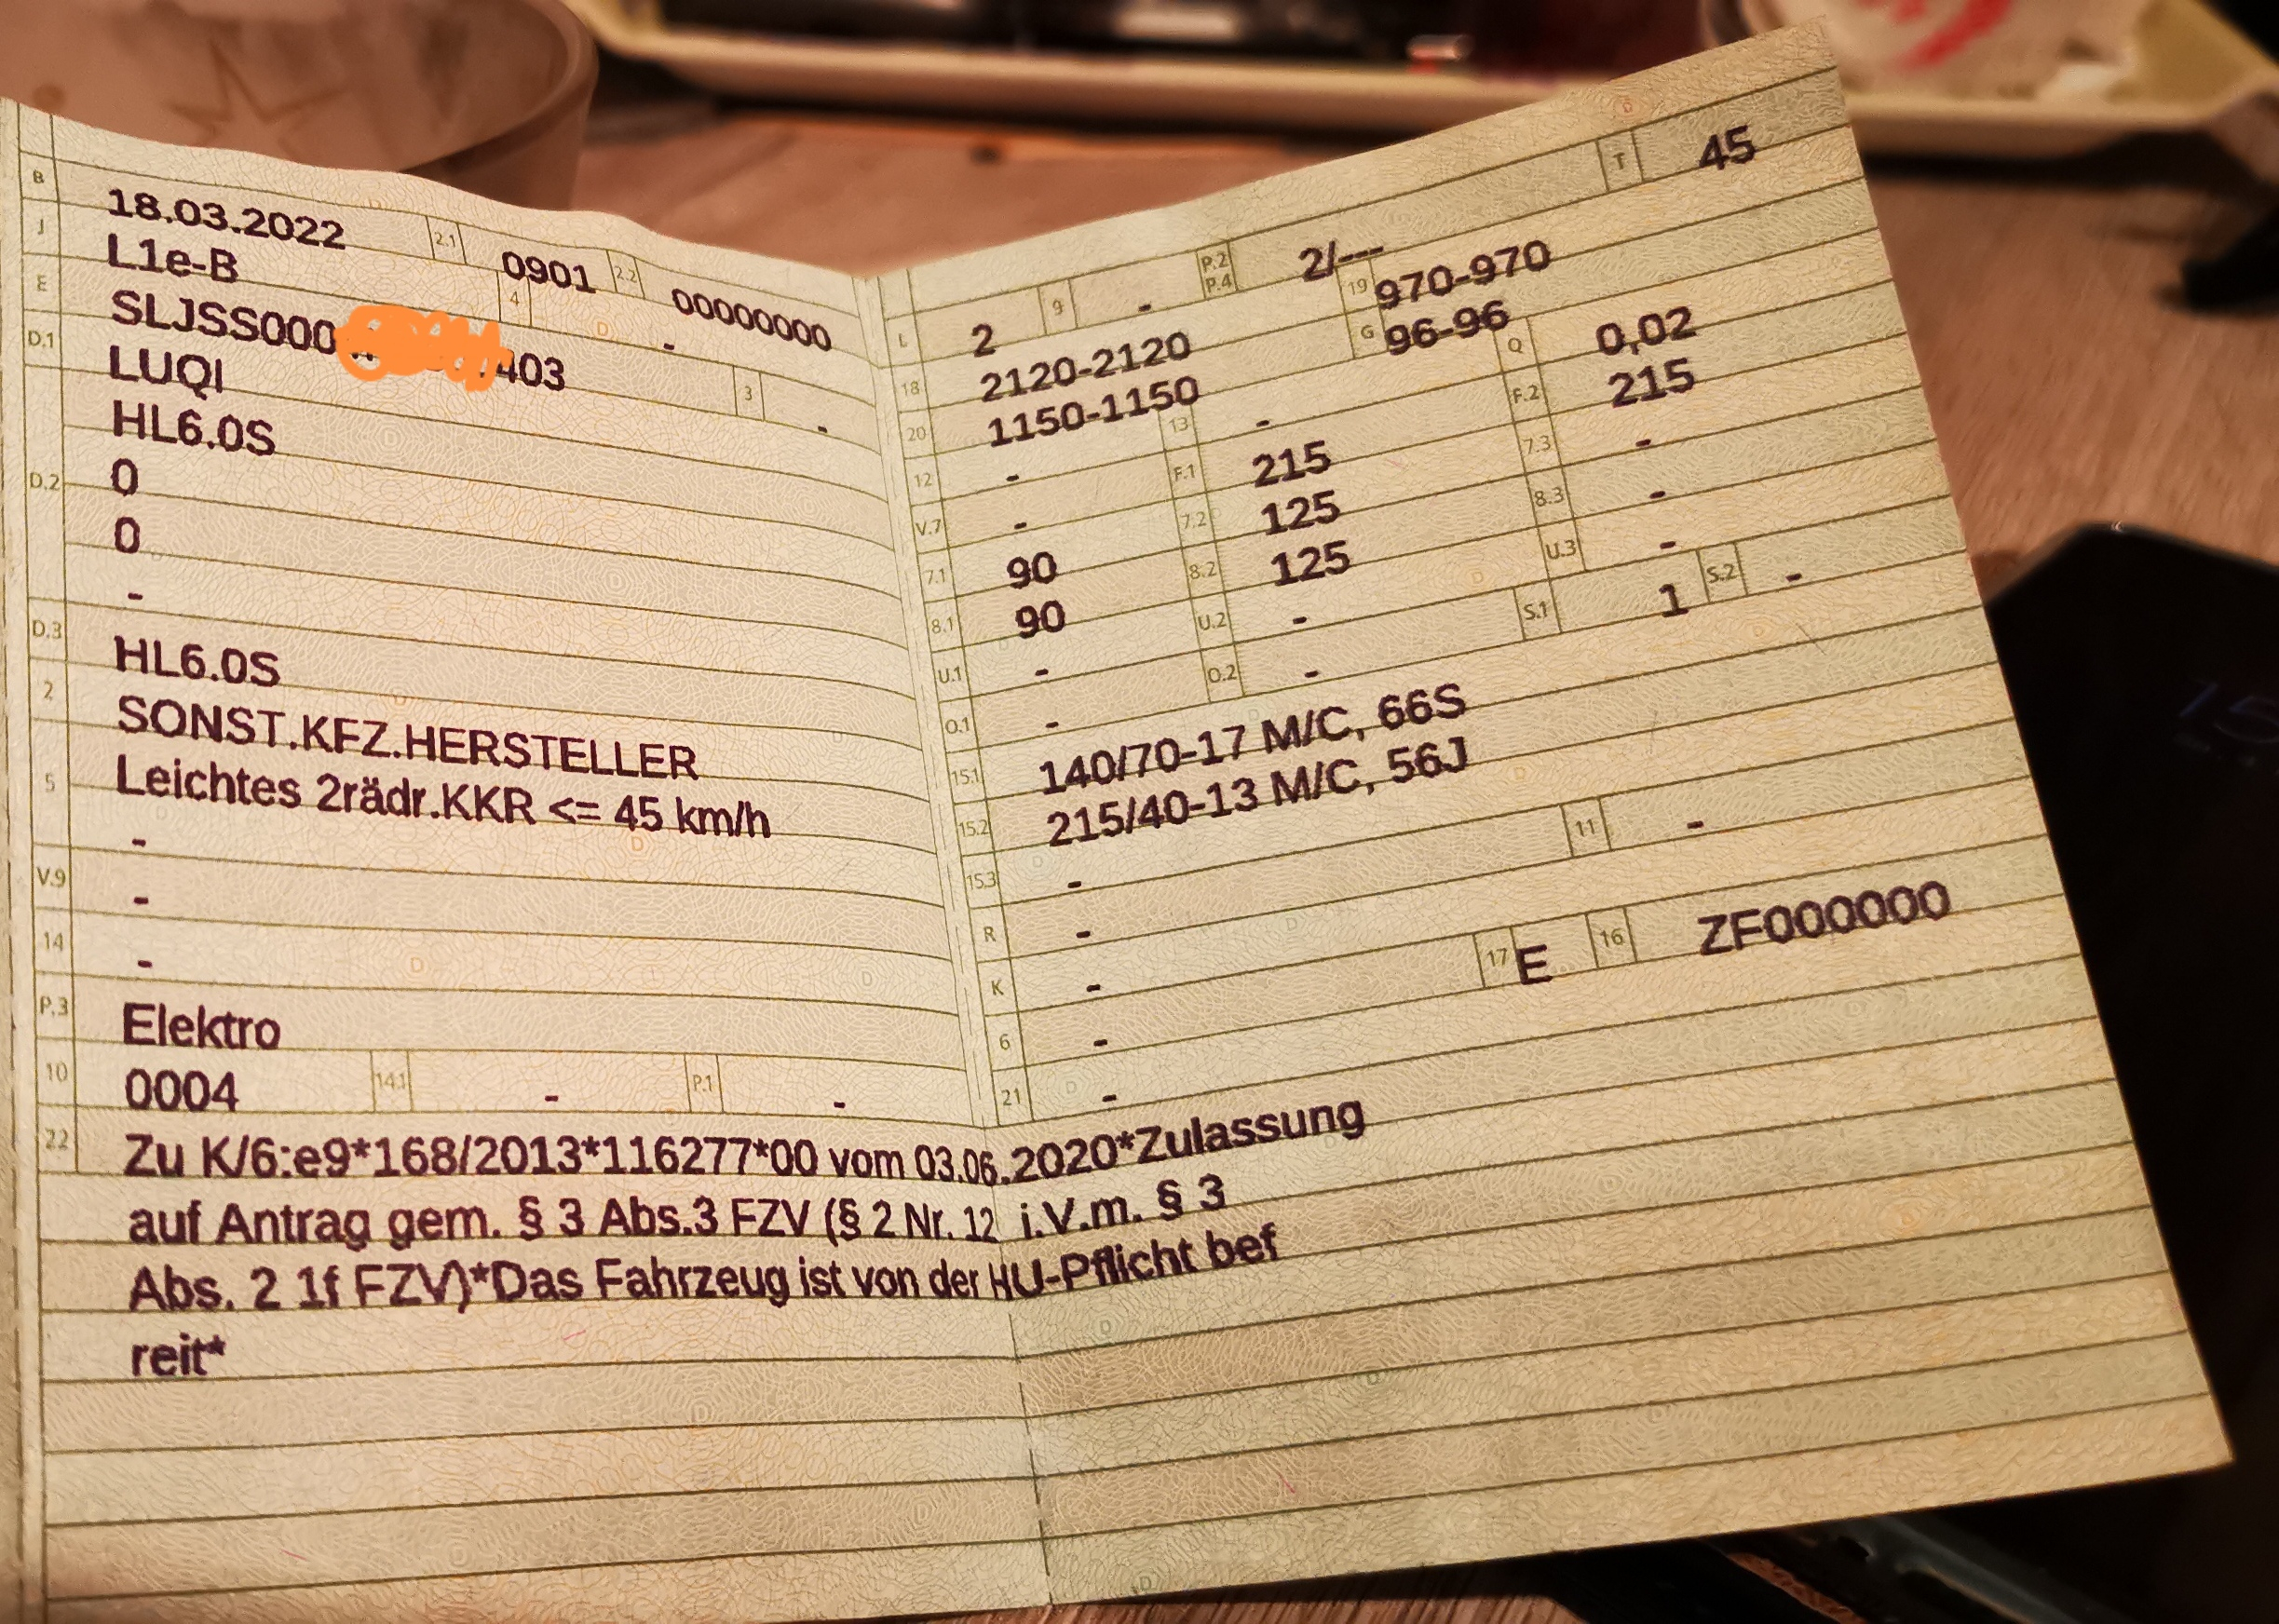 B 18.03.2022 2.1 0901 2.2 00000000
J L1e-B 4 -
E SLJSS000 403 3 -
D.1 LUQI
D.2 HL6.0S
0
0
-
D.3 HL6.0S
2 SONST.KFZ.HERSTELLER
5 Leichtes 2rädr.KKR <= 45 km/h
-
V.9 -
14 -
P.3 Elektro
10 0004 14.1 - P.1 -
L 2 9 - P.2 P.4 2/--- T 45
18 2120-2120 19 970-970
20 1150-1150 G 96-96
12 - 13 - Q 0,02
V.7 - F.1 215 F.2 215
7.1 90 7.2 125 7.3 -
8.1 90 8.2 125 8.3 -
U.1 - U.2 - U.3 -
O.1 - O.2 - S.1 1 S.2 -
15.1 140/70-17 M/C, 66S
15.2 215/40-13 M/C, 56J
15.3 -
R - 11 -
K -
6 - 17 E 16 ZF000000
21 -
22 Zu K/6:e9*168/2013*116277*00 vom 03.06.2020*Zulassung
auf Antrag gem. § 3 Abs.3 FZV (§ 2 Nr. 12 i.V.m. § 3
Abs. 2 1f FZV)*Das Fahrzeug ist von der HU-Pflicht bef
reit*